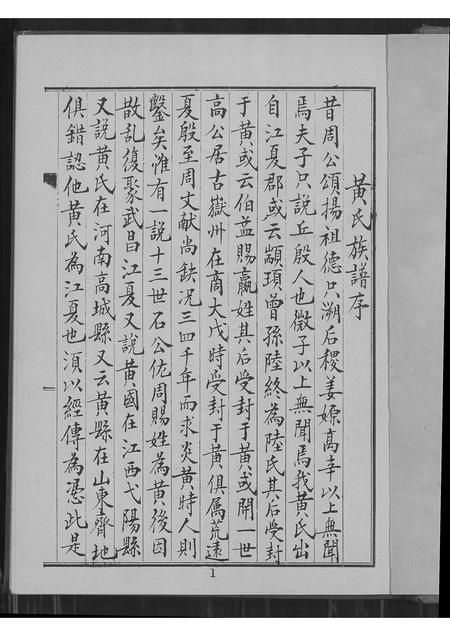 黃氏族譜序
昔周公頌揚祖德只溯后稷姜嫄高辛以上無聞
焉夫子只說丘殷人也微子以上無聞焉我黃氏出
自江夏郡或云顓頊曾孫陸終為陸氏其后受封
于黃或云伯益賜嬴姓其后受封于黃或開一世
高公居古嶽州在商大戊時受封于黃俱属荒遠
夏殷至周文献尚缺况三四千年而求炎黃時人則
鑿矣惟有一說十三世石公佐周賜姓為黃後因
散乱復聚武昌江夏又說黃國在江西弋陽縣
又說黃氏在河南高城縣又云黃縣在山東齊地
俱錯認他黃氏為江夏也須以經傳為憑此是
1